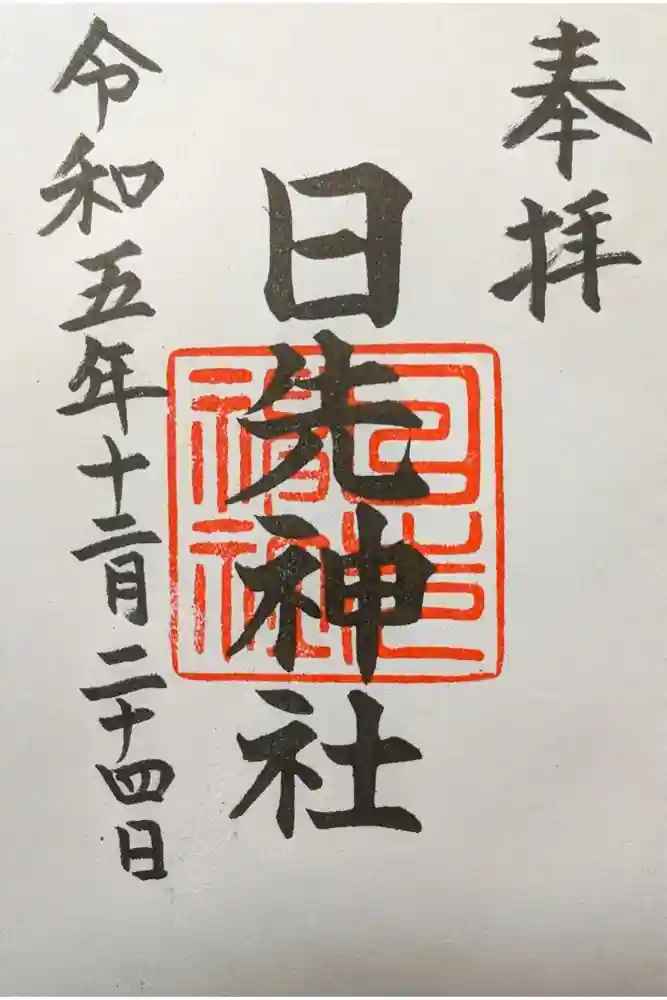 奉拝
日先神社
令和五年十二月二十四日